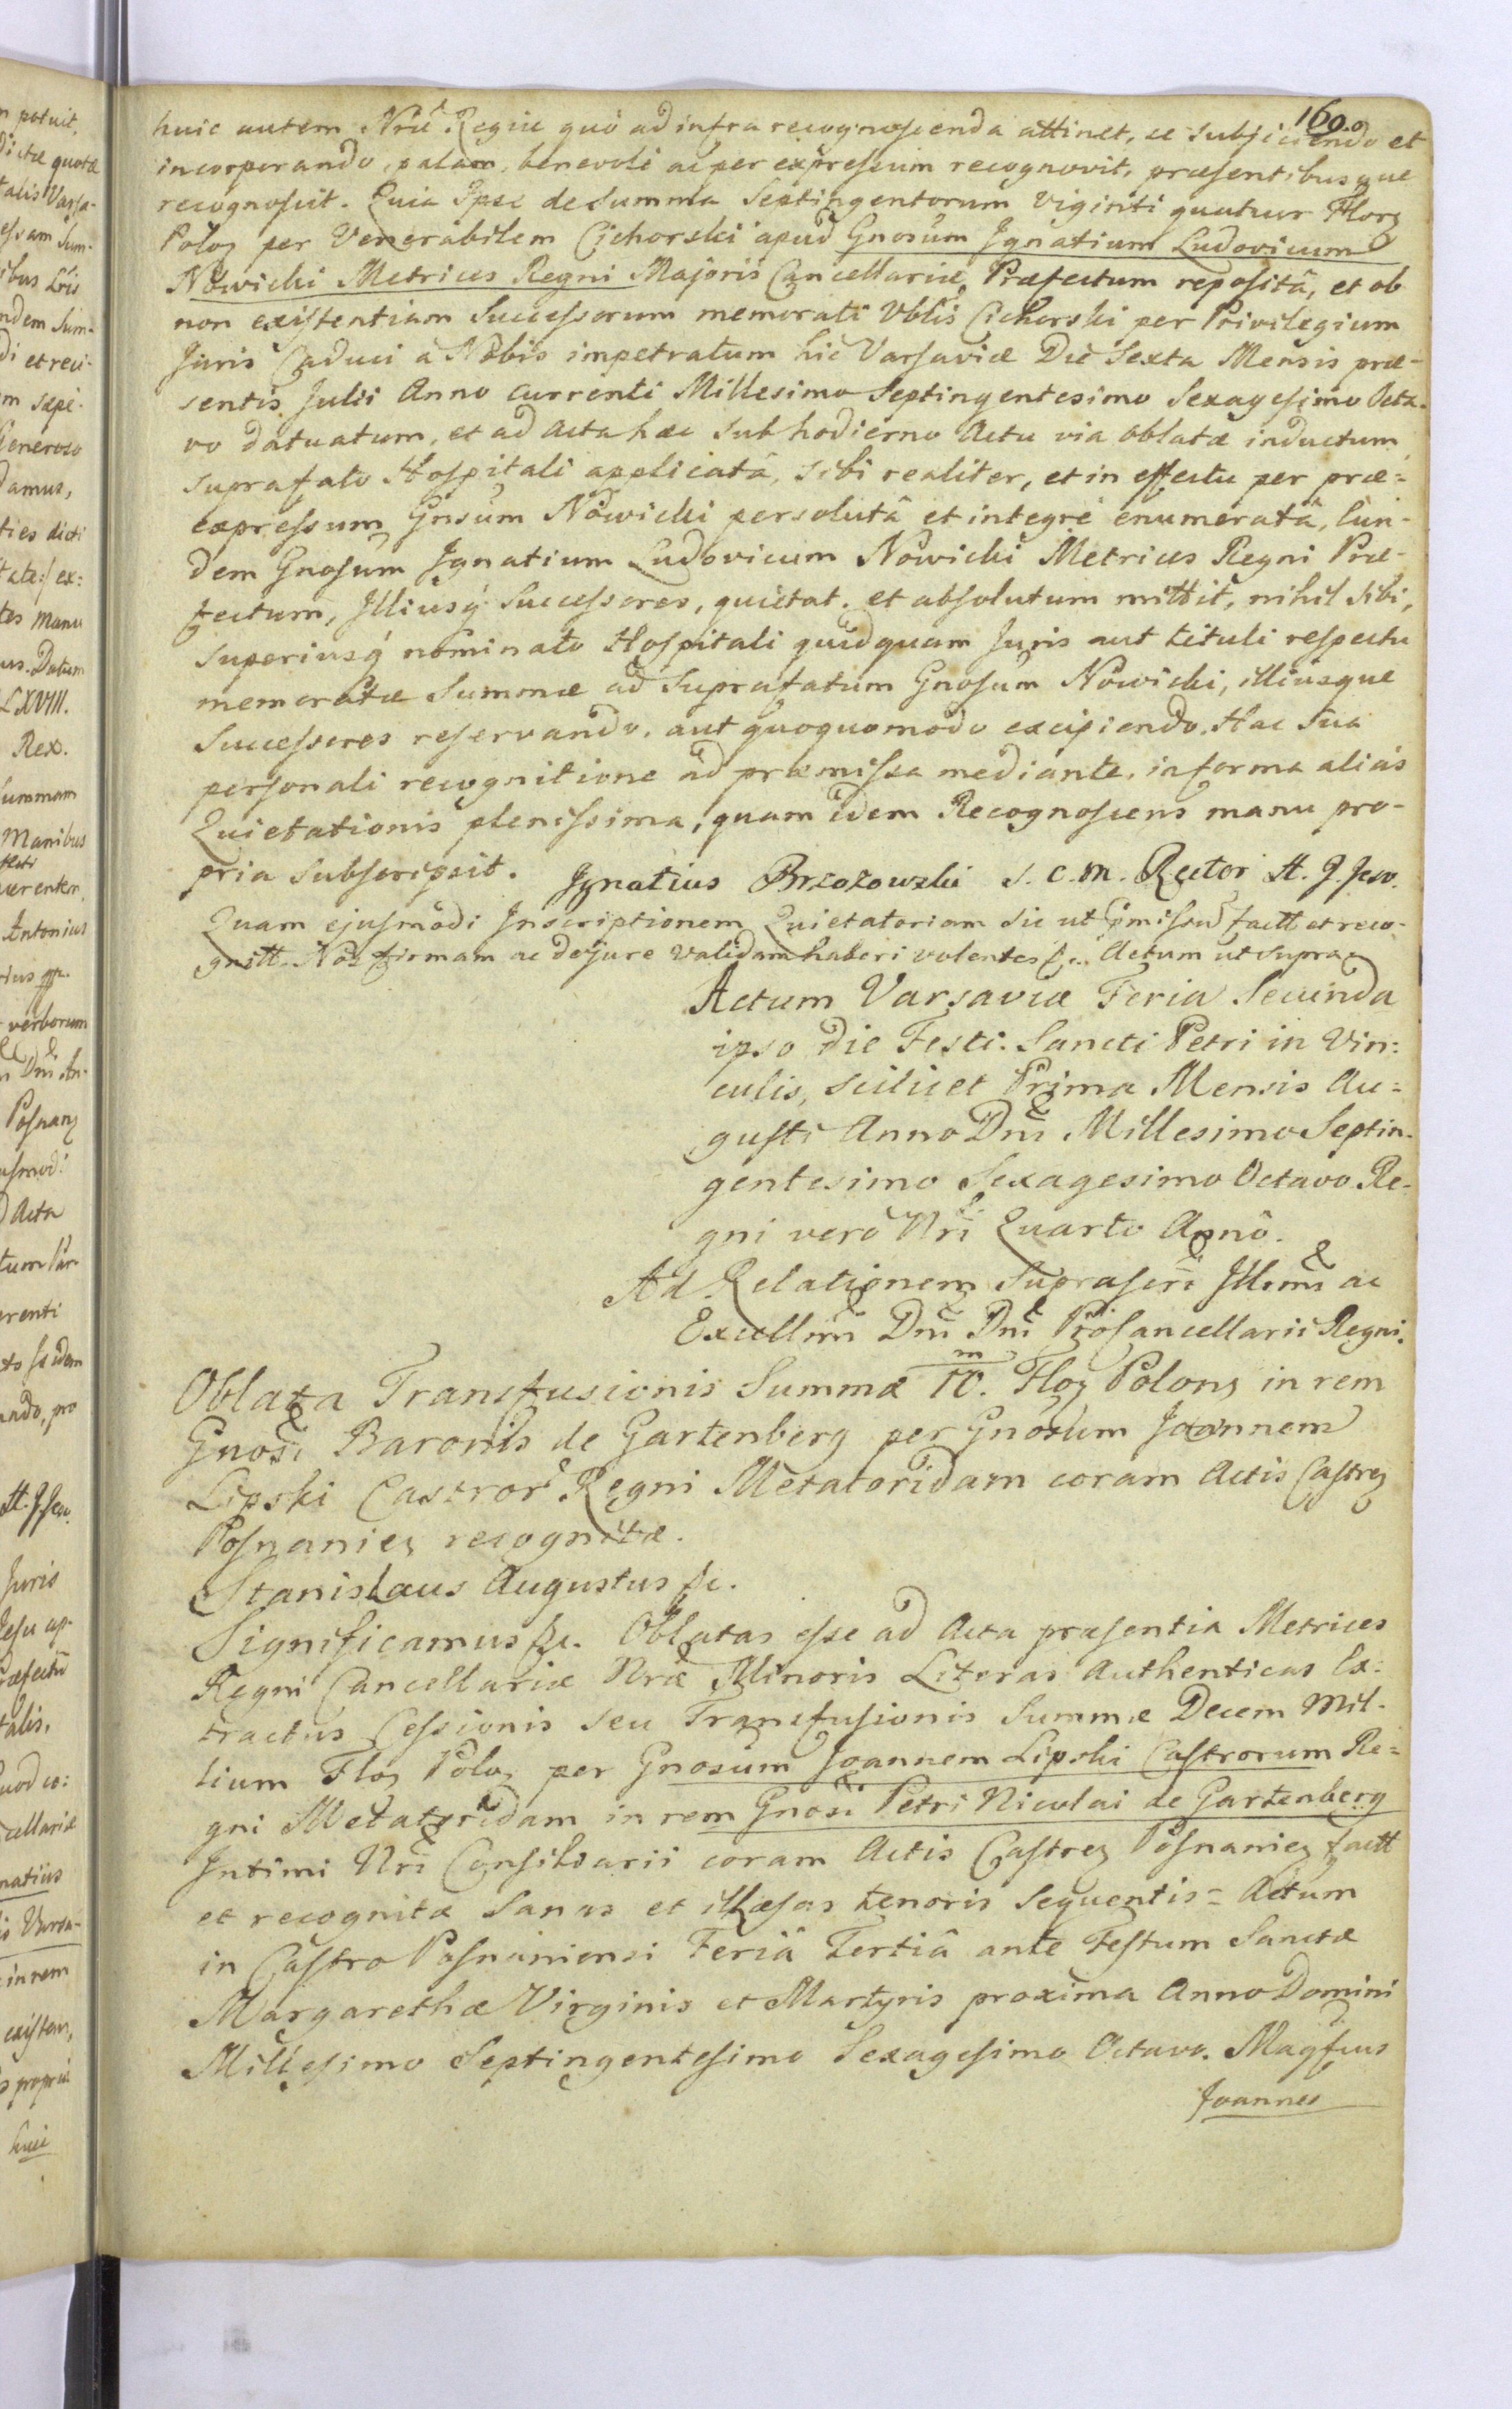 160.
huic autem Nrae Regiae quò ad infra recognoscenda attinet, se subjiciendo et
incorporando, palam, benevole ac per expressum recognovit, praesentibusque
recognoscit. Quia Ipse de Summa Septingentorum viginti quatuor Florz
Poloz per Venerabilem Cichorski apud Gnosum Jgnatium Ludovicum
Nowicki Metrices Regni Majoris Cancellariae Praefectum repositâ, et ob
non existentiam Successorum memorati Vblis Cichorski per Privilegium
Juris Caduci a Nobis impetratum hic Varsaviae Die Sexta Mensis prae-
sentis Julii Anno currenti Millesimo Septingentesimo Sexagesimo Octa-
vo datuatum, et ad Acta haec sub hodierno Actu via oblatae inductum
suprafato Hospitali applicatâ, sibi realiter, et in effectu per prae=
expressum Gnsum Nowicki persolutâ et integrè enumeratâ, Eun-
dem Gnosum Jgnatium Ludovicum Nowicki Metrices Regni Prae-
fectum, Jlliusq̃ Successores, quietat. et absolutum mittit, nihil sibi,
superiusq̃ nominato Hospitali quidquam Juris aut tituli respectu
memoratae Summae ad Suprafatum Gnosum Nowicki, illiusque
Successores reservando, aut quoquomodo excipiendo. Hac sua
personali recognitione ad praemissa mediante, in forma aliàs
Quietationis plenissima, quam idem Recognoscens manu pro-
pria subscripsit. Jgnatius Brzozowski S. C. M. Rector H. J. Jesv.
Quam ejusmodi Jnscriptionem Quietatoriam sic ut p̃missũ factt et reco-
gnitt. Nos firmam ac de jure validam haberi volentes &c. Actum ut supra.
Actum Varsaviae Feria Secunda
ipso die Festi Sancti Petri in Vin=
culis, scilicet Prima Mensis Au=
gusti Anno Dni Millesimo Septin-
gentesimo Sexagesimo Octavo Re-
gni verò Nri Quarto Anno.
Ad Relationem Suprascri Jllmi ac
Excellmi Dni Dni Procancellarii Regni.
Oblata Transfusionis Summae 10.m Floz Polonz in rem
Gnosi Baronis de Gartenberg per Gnosum Joannem
Lipski Castror Regni Metatoridam coram Actis Castrez
Posnaniez recognitae.
Stanislaus Augustus &c.
Significamus &c. Oblatas esse ad Acta praesentia Metrices
Regni Cancellariae Nrae Minoris Literas Authenticas Ex=
tractus Cessionis seu Transfusionis Summae Decem Mil-
lium Floz Poloz per Gnosum Joannem Lipski Castrorum Re=
gni Metatoridam in rem Gnosi Petri Nicolai de Gartenberg
Jntimi Nri Consiliarii coram Actis Castrez Posnaniez factt
et recognitae Sanas et illaesas tenoris sequentis = Actum
in Castro Posnaniensi Feriâ Tertiâ ante Festum Sanctae
Margarethae Virginis et Martyris proxima Anno Domini
Millesimo Septingentesimo Sexagesimo Octavo. Magfcus
Joannes